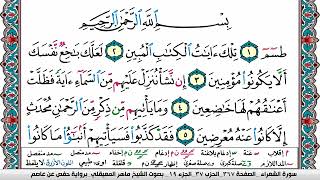 بِسْمِ اللَّهِ الرَّحْمَٰنِ الرَّحِيمِ
طسٓمٓ ١ تِلْكَ ءَايَٰتُ ٱلْكِتَٰبِ ٱلْمُبِينِ ٢ لَعَلَّكَ بَٰخِعٌ نَّفْسَكَ
أَلَّا يَكُونُوا۟ مُؤْمِنِينَ ٣ إِن نَّشَأْ نُنَزِّلْ عَلَيْهِم مِّنَ ٱلسَّمَآءِ ءَايَةً فَظَلَّتْ
أَعْنَٰقُهُمْ لَهَا خَٰضِعِينَ ٤ وَمَا يَأْتِيهِم مِّن ذِكْرٍ مِّنَ ٱلرَّحْمَٰنِ مُحْدَثٍ
إِلَّا كَانُوا۟ عَنْهُ مُعْرِضِينَ ٥ فَقَدْ كَذَّبُوا۟ فَسَيَأْتِيهِمْ أَنۢبَٰٓؤُا۟ مَا كَانُوا۟
سورة الشعراء الصفحة ٣٦٧ الحزب ٣٧ الجزء ١٩ بصوت الشيخ ماهر المعيقلي برواية حفص عن عاصم